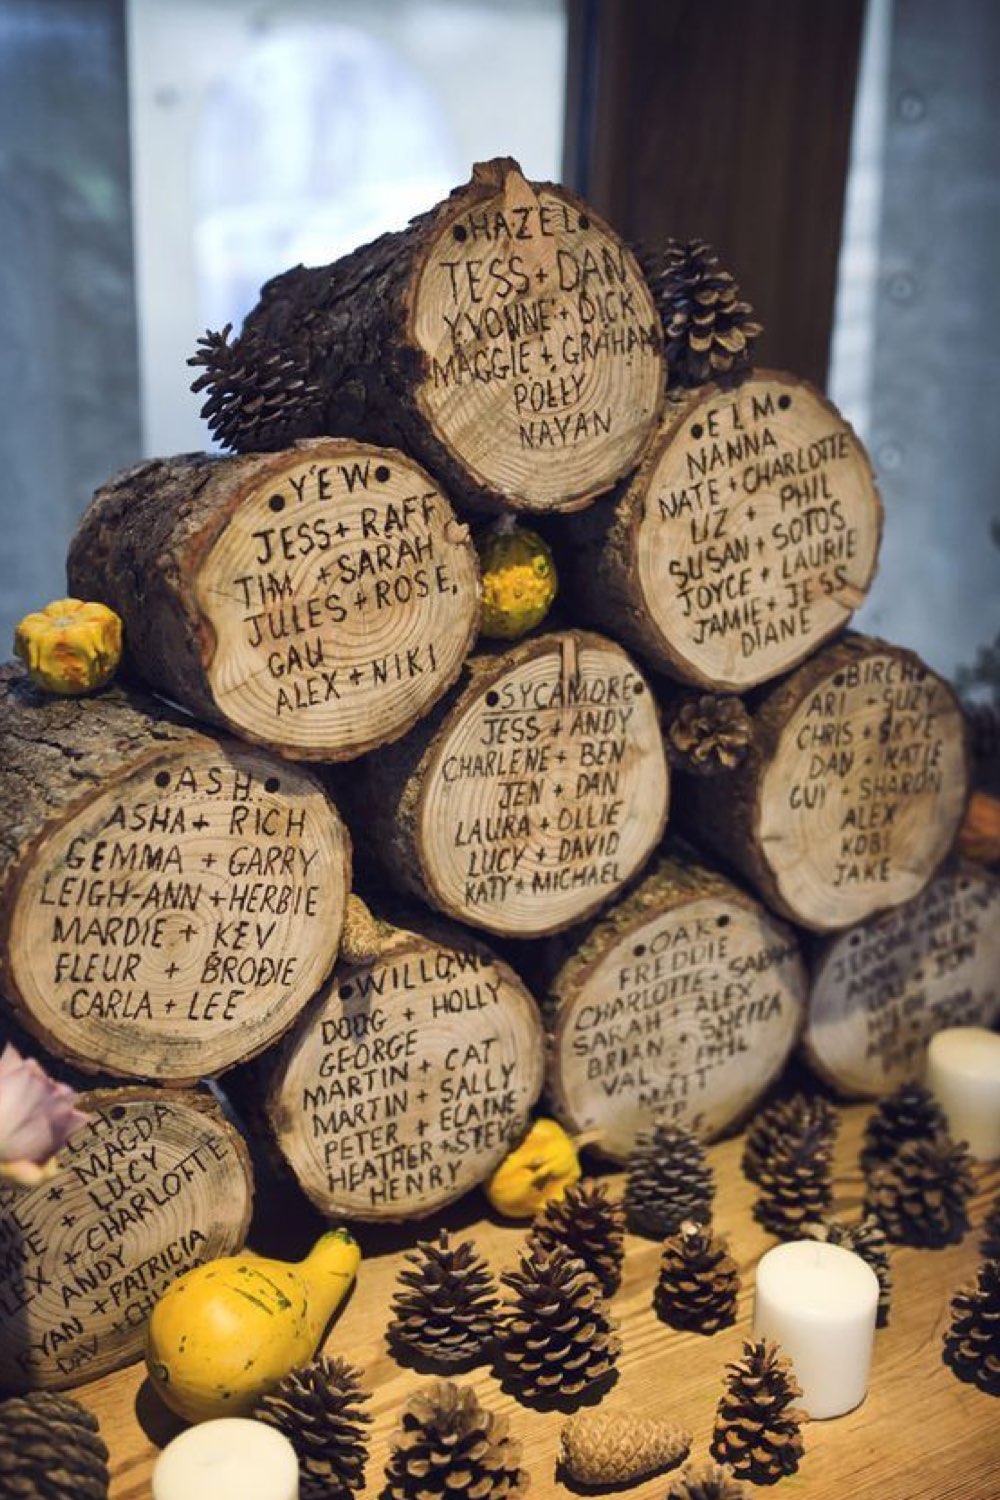 HAZEL
TESS + DAN
YVONNE + DICK
MAGGIE + GRAHAM
POLLY
NAYAN
ELM
NANNA
NATE + CHARLOTTE
LIZ + PHIL
SUSAN + SOTOS
JOYCE + LAURIE
JAMIE + JESS
DIANE
YEW
JESS + RAFF
TIM + SARAH
JULES + ROSE,
GAU
ALEX + NIKI
SYCAMORE
JESS + ANDY
CHARLENE + BEN
JEN + DAN
LAURA + OLLIE
LUCY + DAVID
KATY + MICHAEL
BIRCH
ARI + SUZY
CHRIS + SKYE
DAN + KATIE
GUY + SHARON
ALEX
KOBI
JAKE
ASH
ASHA + RICH
GEMMA + GARRY
LEIGH-ANN + HERBIE
MARDIE + KEV
FLEUR + BRODIE
CARLA + LEE
WILLOW
DOUG + HOLLY
GEORGE
MARTIN + CAT
MARTIN + SALLY
PETER + ELAINE
HEATHER + STEVE
HENRY
OAK
FREDDIE
CHARLOTTE +
SARAH + ALEX
BRIAN + SHEILA
VAL + PHIL
MATT
+ ALEX
+ JON
+ MAGDA
+ LUCY
+ CHARLOTTE
ANDY
RYAN + PATRICIA
DAV +